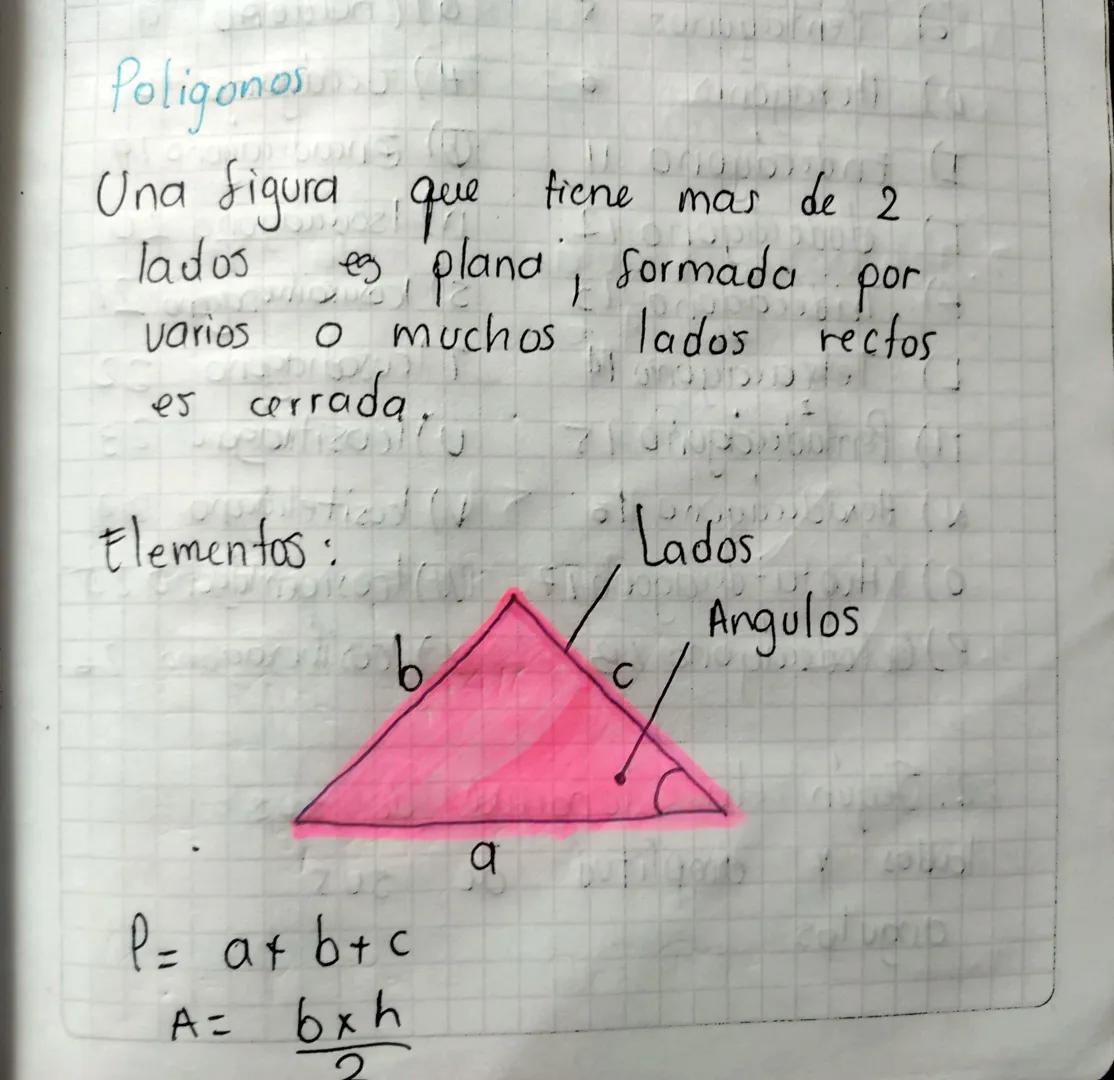 Poligonos
Una figura que tiene mas de 2
lados es plana, formada por
varios o muchos lados rectos
es cerrada.
Elementos:
Lados
Angulos
b
c
a
P= a+b+c
A= b x h
2